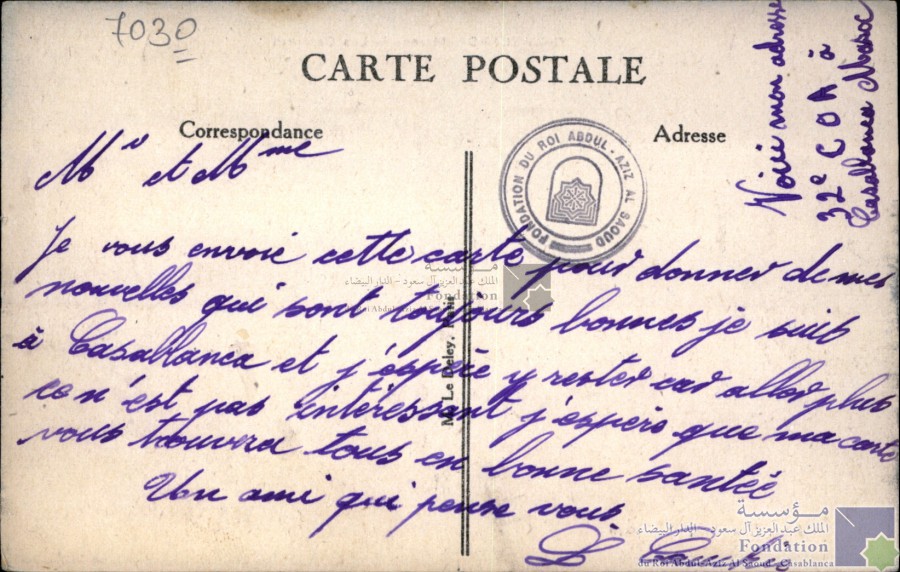 7030
CARTE POSTALE
Correspondance
Adresse
FONDATION DU ROI ABDUL-AZIZ AL SAOUD
Voici mon adresse
32e C O A à
Casablanca Maroc
Mr et Mme
Je vous envoie cette carte pour donner de mes
nouvelles qui sont toujours bonnes je suis
à Casablanca et j'espère y rester car aller plus
ce n'est pas intéressant j'espère que ma carte
vous trouvera tous en bonne santée
Un ami qui pense vous
L.
مؤسسة
الملك عبد العزيز آل سعود - الدار البيضاء
Fondation
مؤسسة
الملك عبد العزيز آل سعود - الدار البيضاء
Fondation
du Roi Abdul-Aziz Al Saoud - Casablanca